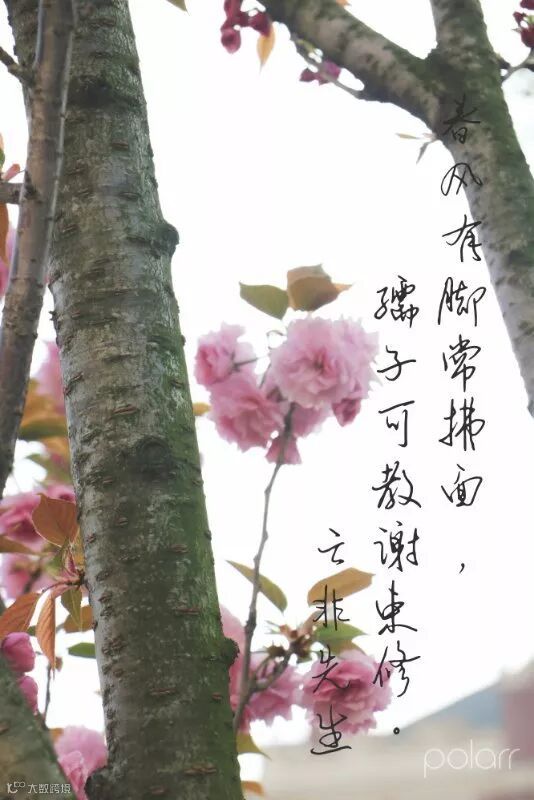 春风有脚常拂面，
孺子可教谢束修。
亡非先生
polarr
大数跨境